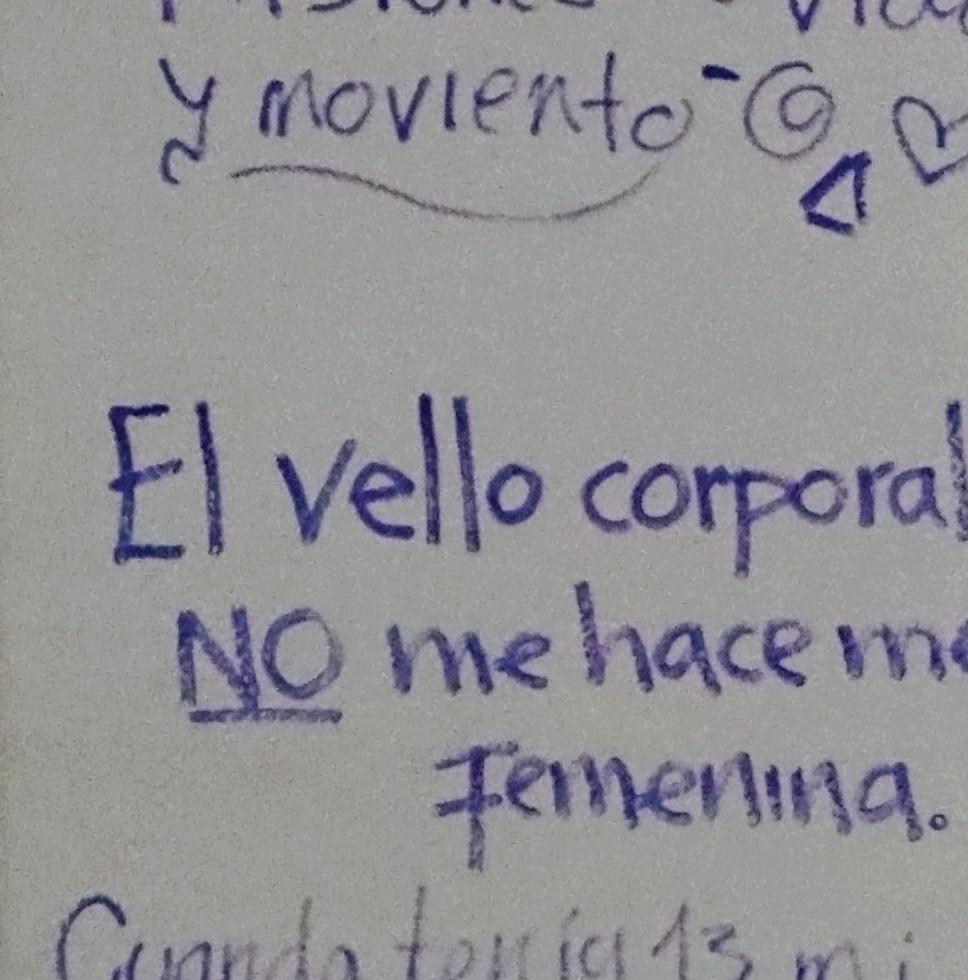 y moviento -
El vello corporal
NO me hace
Femenina.
Cuando tenía 13 mi